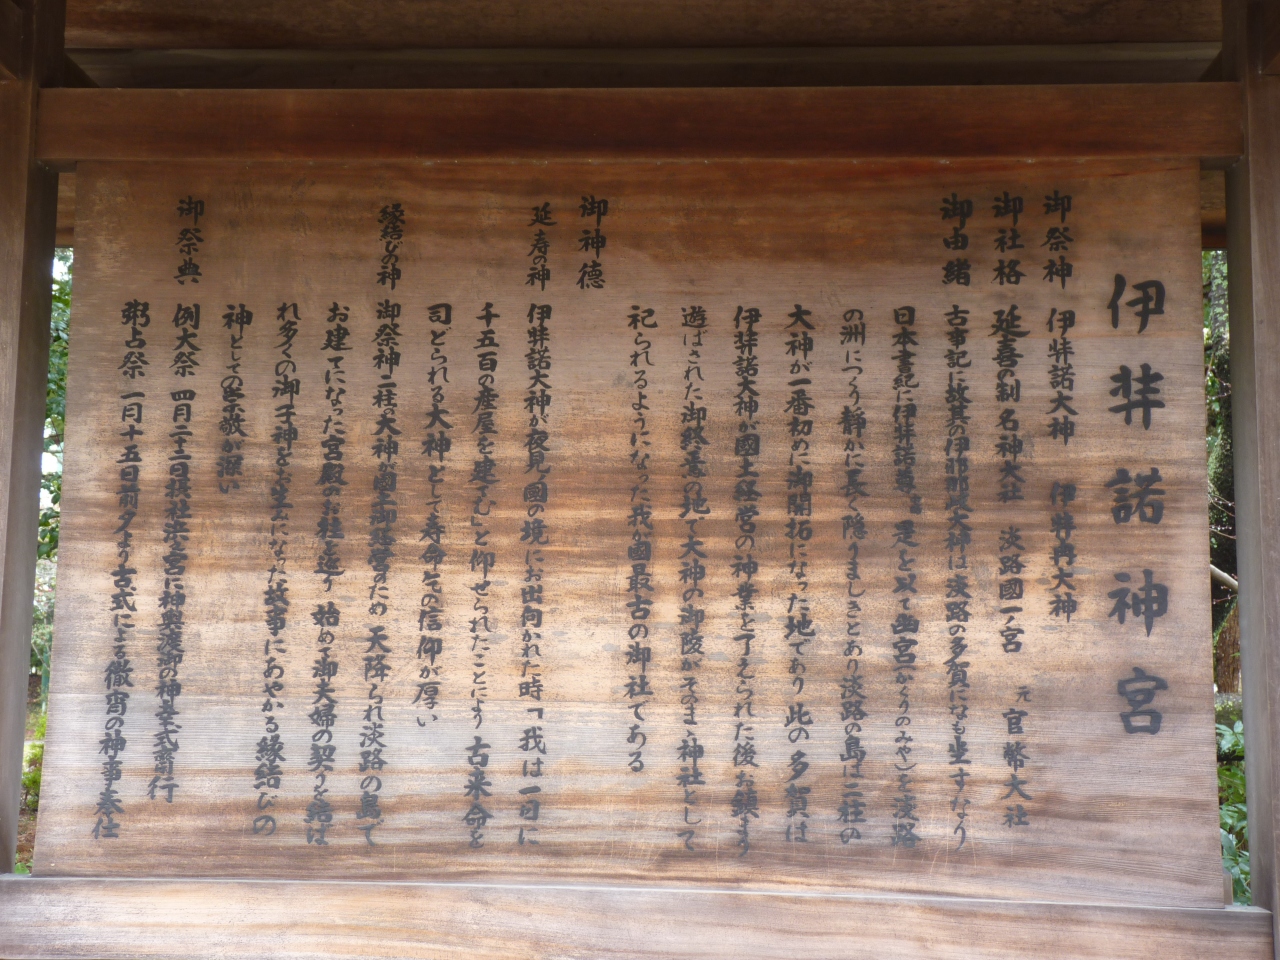 伊弉諾神宮
御祭神 伊弉諾大神 伊弉冉大神
御社格 延喜の制名神大社 淡路國一ノ宮 元官幣大社
御由緒 古事記に故其の伊耶那岐大神は淡路の多賀になも坐すなり
日本書紀に伊弉諾尊 是を以て幽宮(かくりのみや)を淡路
の洲につくり静かに長く隠りましきとあり淡路の島は二柱の
大神が一番初めに御開拓になった地であり此の多賀は
伊弉諾大神が國土経営の神業を了えられた後お鎮まり
遊ばされた御終焉の地で大神の御陵がそのまゝ神社として
祀られるようになった我が國最古の御社である
御神徳
延寿の神 伊弉諾大神が夜見の國の境にお出向かれた時「我は一日に
千五百の産屋を建てむ」と仰せられたことにより古来命を
司どられる大神として寿命乞の信仰が厚い
縁結びの神 御祭神二柱の大神が國土御経営のため天降られ淡路の島で
お建てになった宮殿のお柱を巡り始めて御夫婦の契りを結ば
れ多くの御子神をお生になった故事にあやかる縁結びの
神としての崇敬が深い
御祭典 例大祭 四月二十二日摂社浜之宮に神輿渡御の神幸式斎行
粥占祭 一月十五日前夕より古式による徹宵の神事奉仕